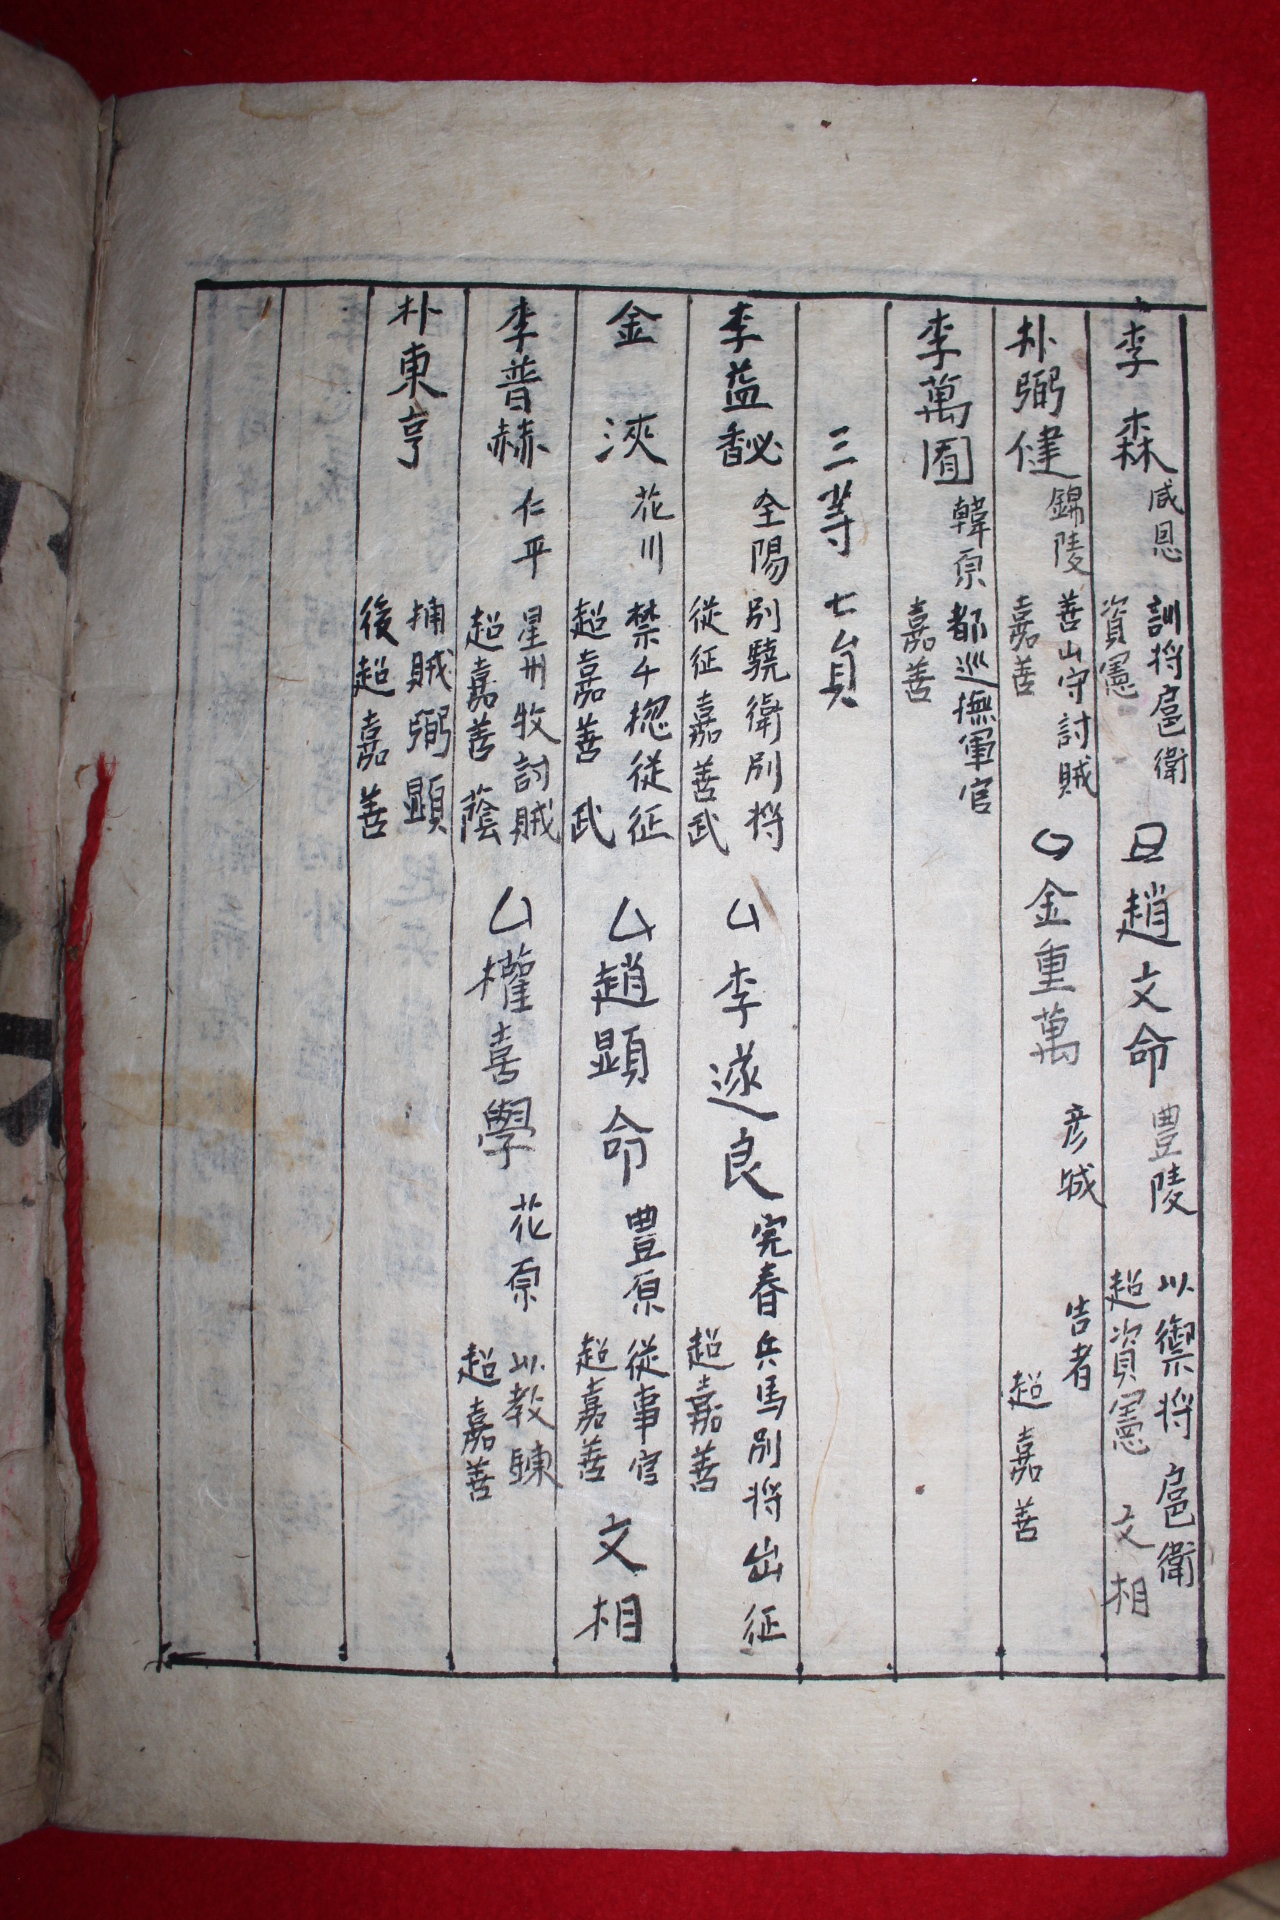 李森 咸恩 訓將扈衛 資憲 趙文命 豊陵 以禦將扈衛 超資憲 文相
朴弼健 錦陵 善山守討賊 嘉善 金重萬 彦城 告者 超嘉善
李萬囿 韓原 都巡撫軍官 嘉善
三等 七員
李益馝 全陽 別驍衛別將 從征嘉善武 李遂良 完春 兵馬別將出征 超嘉善
金浹 花川 禁千揔從征 超嘉善 武 趙顯命 豊原 從事官 超嘉善 文相
李普赫 仁平 星州牧討賊 超嘉善 蔭 權喜學 花原 以教鍊 超嘉善
朴東亨 捕賊弼顯 後超嘉善